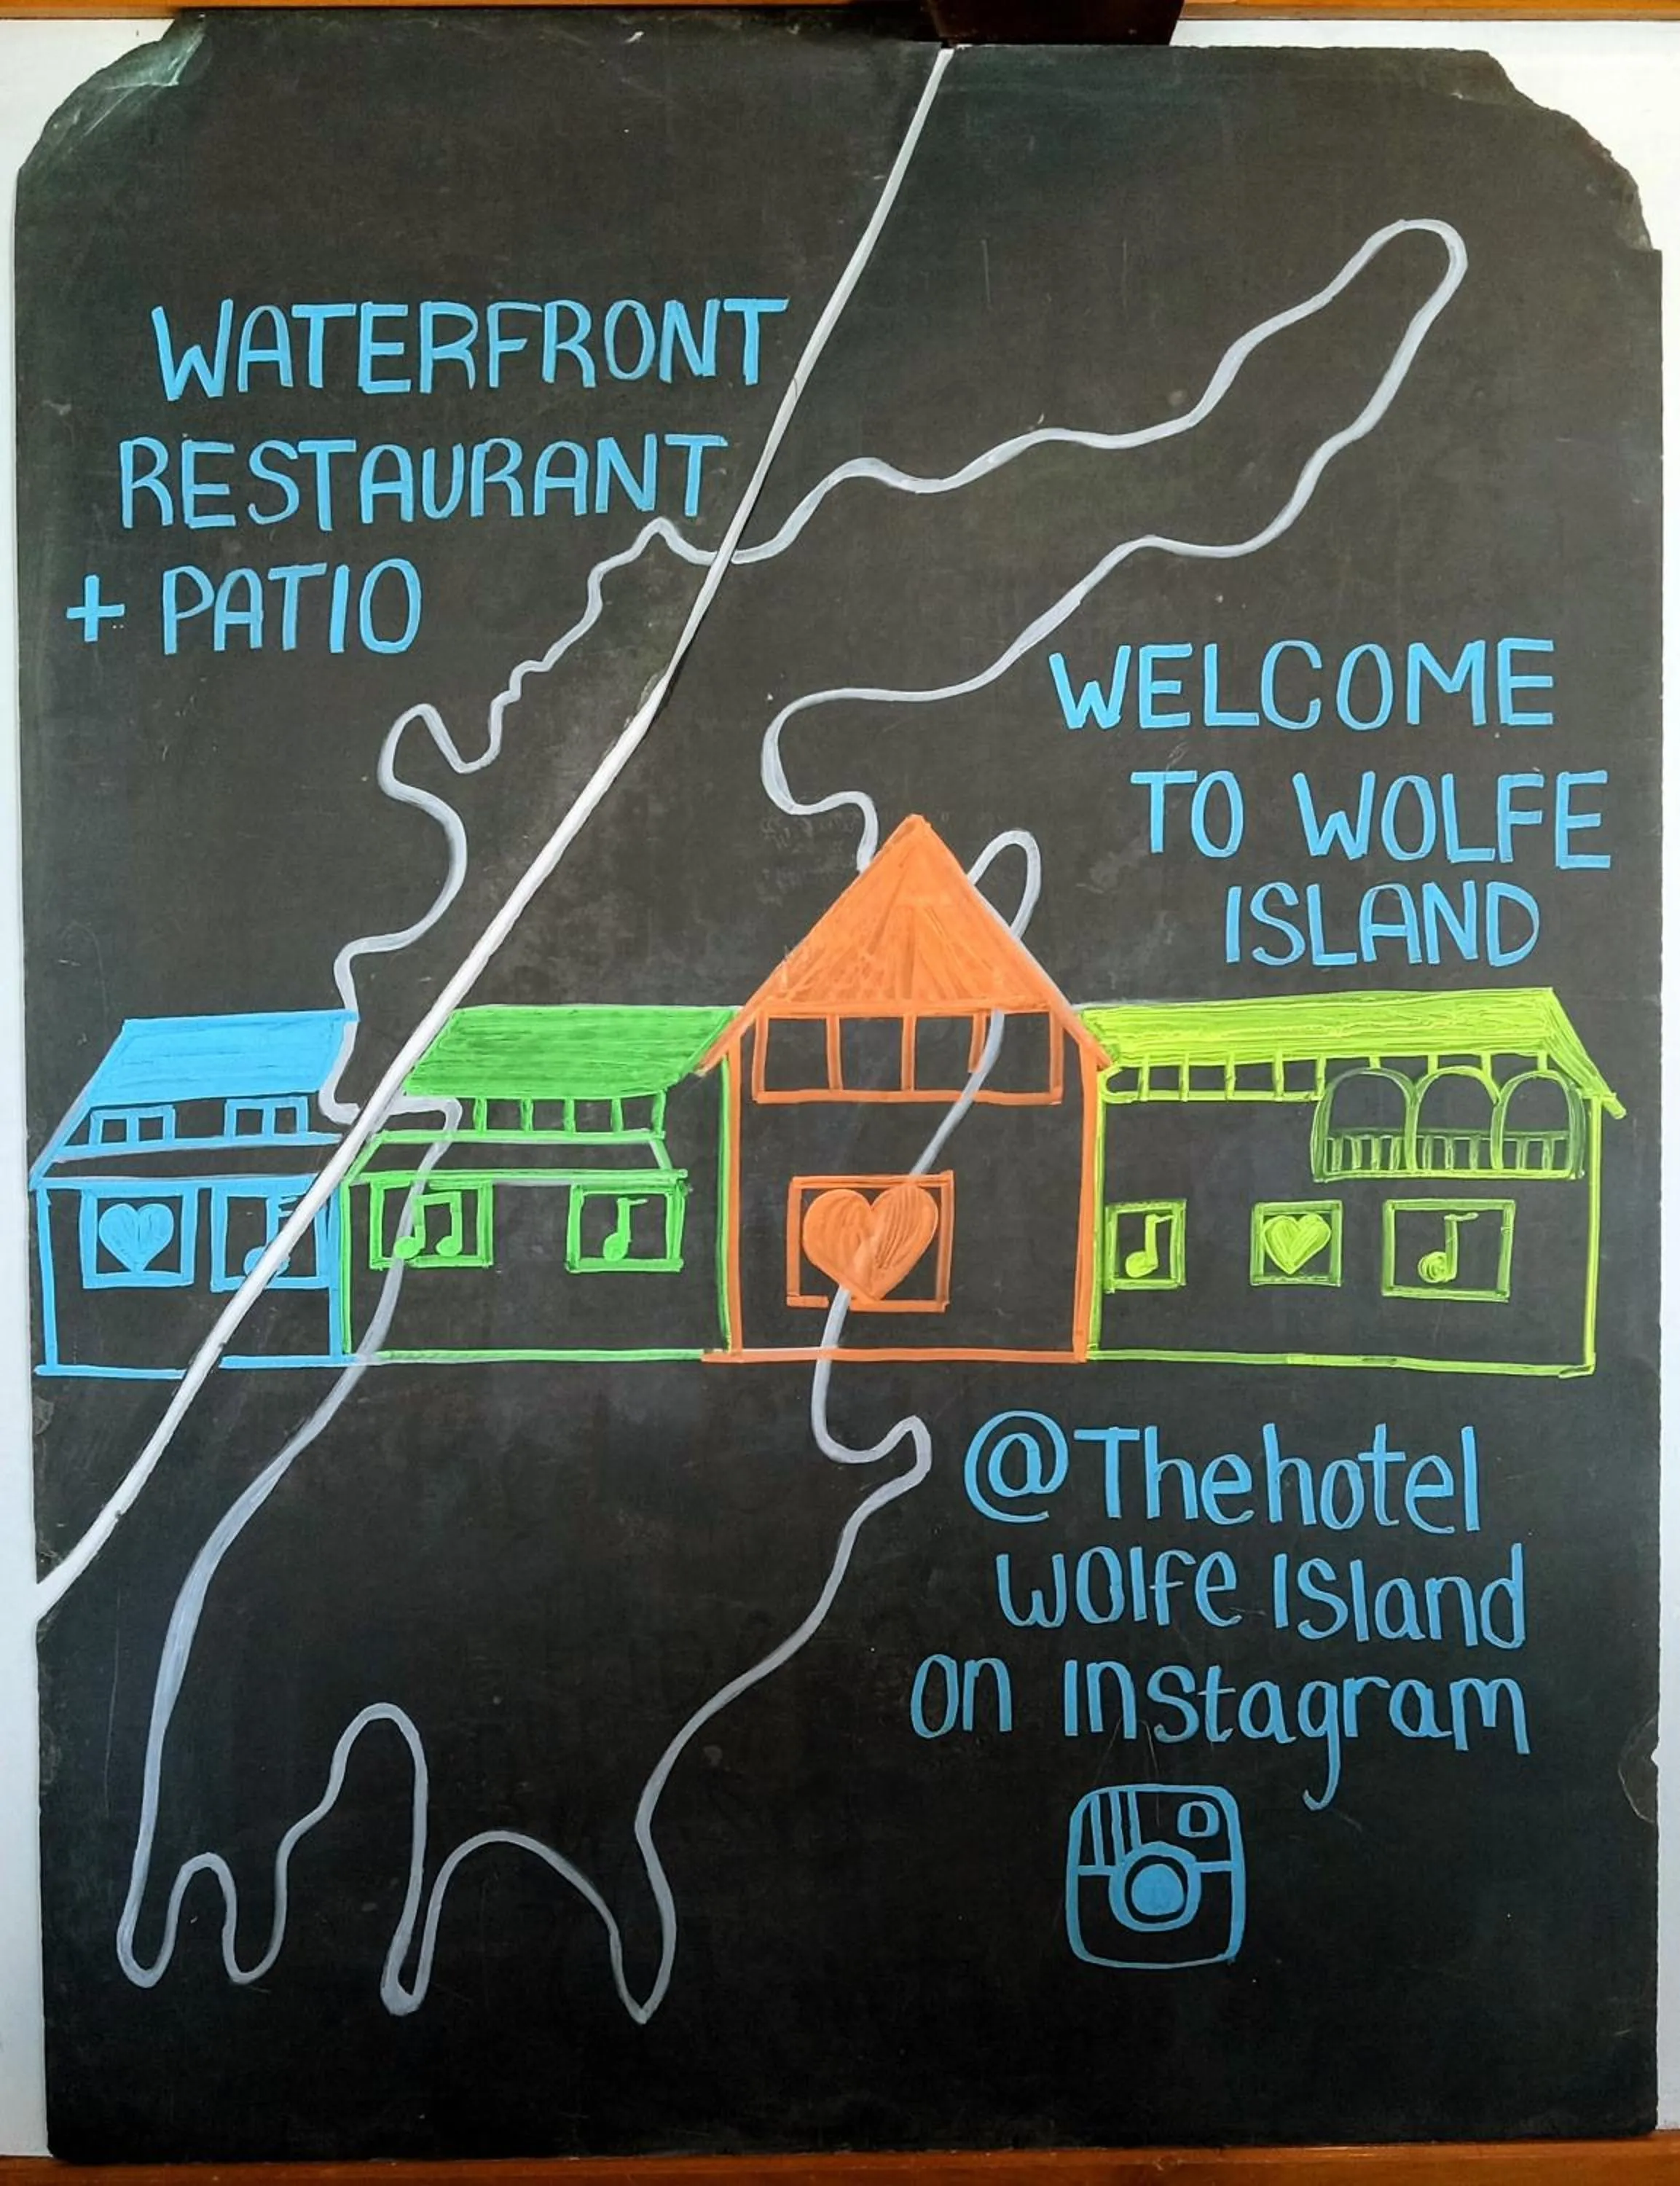 WATERFRONT
RESTAURANT
+ PATIO
WELCOME
TO WOLFE
ISLAND
@Thehotel
wolfe Island
on Instagram